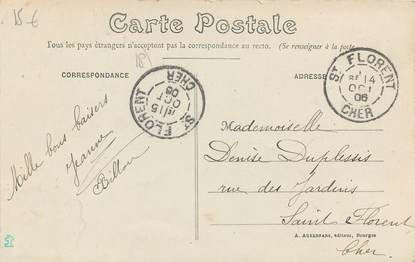 15 €
Carte Postale
Tous les pays étrangers n'acceptent pas la correspondance au recto. (Se renseigner à la poste
(18)
CORRESPONDANCE
ADRESSE
ST FLORENT
14
OCT
06
CHER
ST FLORENT
15
OCT
06
CHER
Mille bons baisers
Jeanne
Billon
Mademoiselle
Denise Duplessis
rue des Jardins
Saint Florent
A. AUXENFANS, éditeur, Bourges
Cher.